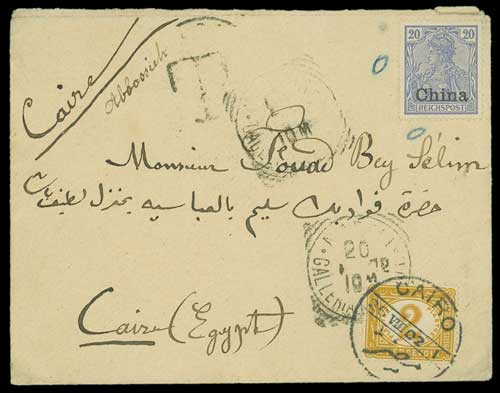 20 20
China
REICHSPOST
Caire
Abbassieh
T
10 M
Monsieur Fouad Bey Sélim
حضرة فواد بك سليم بالعباسيه بمنزل
20
GALLERIA
Caire (Egypt)
CAIRO
VIII 02
2